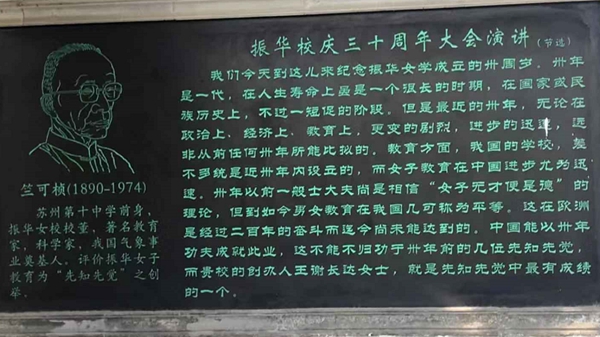 振华校庆三十周年大会演讲(节选)
我们今天到这儿来纪念振华女学成立的卅周岁。卅年
是一代，在人生寿命上虽是一个很长的时期，在国家或民
族历史上，不过一短促的阶段。但是最近的卅年，无论在
政治上、经济上、教育上，更变的剧烈，进步的迅速，远
非从前任何卅年所能比拟的。教育方面，我国的学校，差
不多统是近卅年内设立的，而女子教育在中国进步尤为迅
速。卅年以前一般士大夫尚是相信“女子无才便是德”的
理论，但到如今男女教育在我国几可称为平等。这在欧洲
是经过二百年的奋斗而迄今尚未能达到的。中国能以卅年
功夫成就此业，这不能不归功于卅年前的几位先知先觉，
而贵校的创办人王谢长达女士，就是先知先觉中最有成绩
的一个。
竺可桢(1890-1974)
苏州第十中学前身，
振华女校校董，著名教育
家、科学家，我国气象事
业奠基人。评价振华女子
教育为“先知先觉”之创
举。